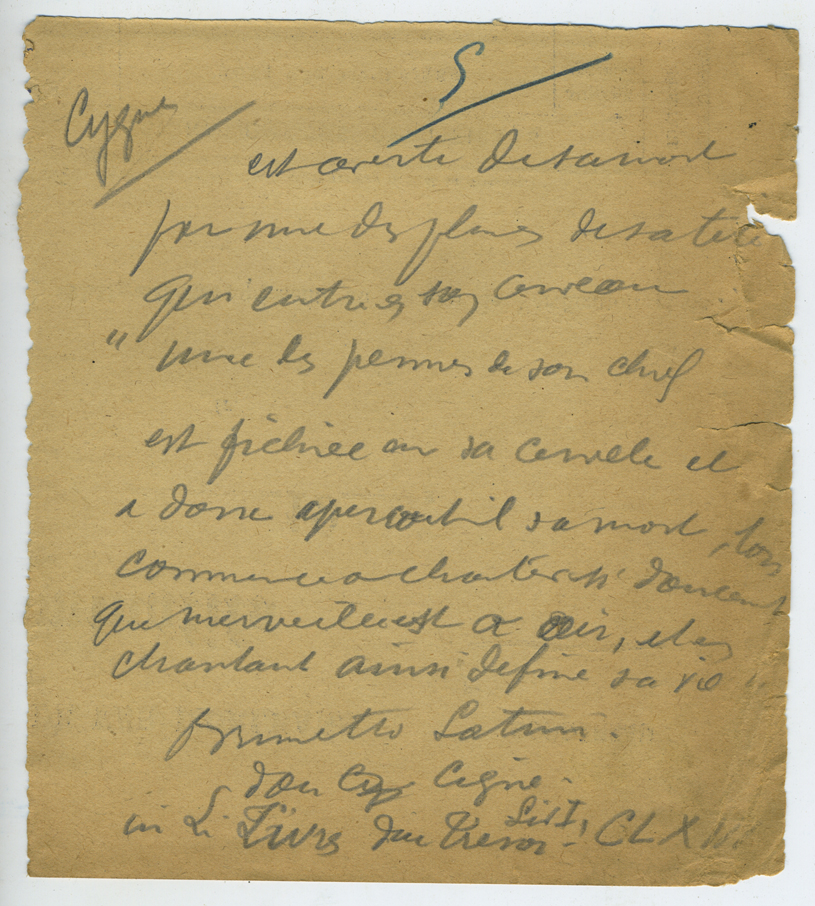 S
Cygne
est averti de sa mort
par une des plumes de sa tête
qui entre en son cerveau
" une des pennes de son chief
est fichiee en sa cervele et
a donc apercoit il sa mort, lors
commence a chanter si doucement
que merveilleus est a oir, et en
chantant ainsi define sa vie "
Brunetto Latini.
dou Cigne.
in Li Livres dou Tresor. Liv I, CLX